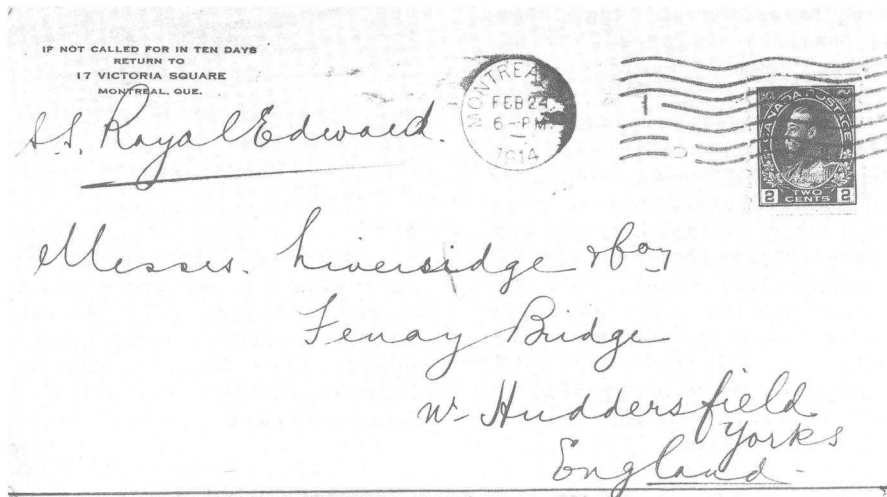 IF NOT CALLED FOR IN TEN DAYS
RETURN TO
17 VICTORIA SQUARE
MONTREAL, QUE.
S.S. Royal Edward.
MONTREAL
FEB 24
6-PM
1914
CANADA POSTAGE
2 TWO CENTS 2
Messrs. Liversidge & Coy
Fenay Bridge
Nr Huddersfield
Yorks
England.